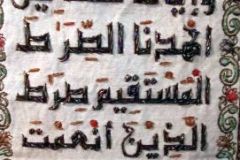 اهدنا الصرط
المستقيم صرط
الذين أنعمت